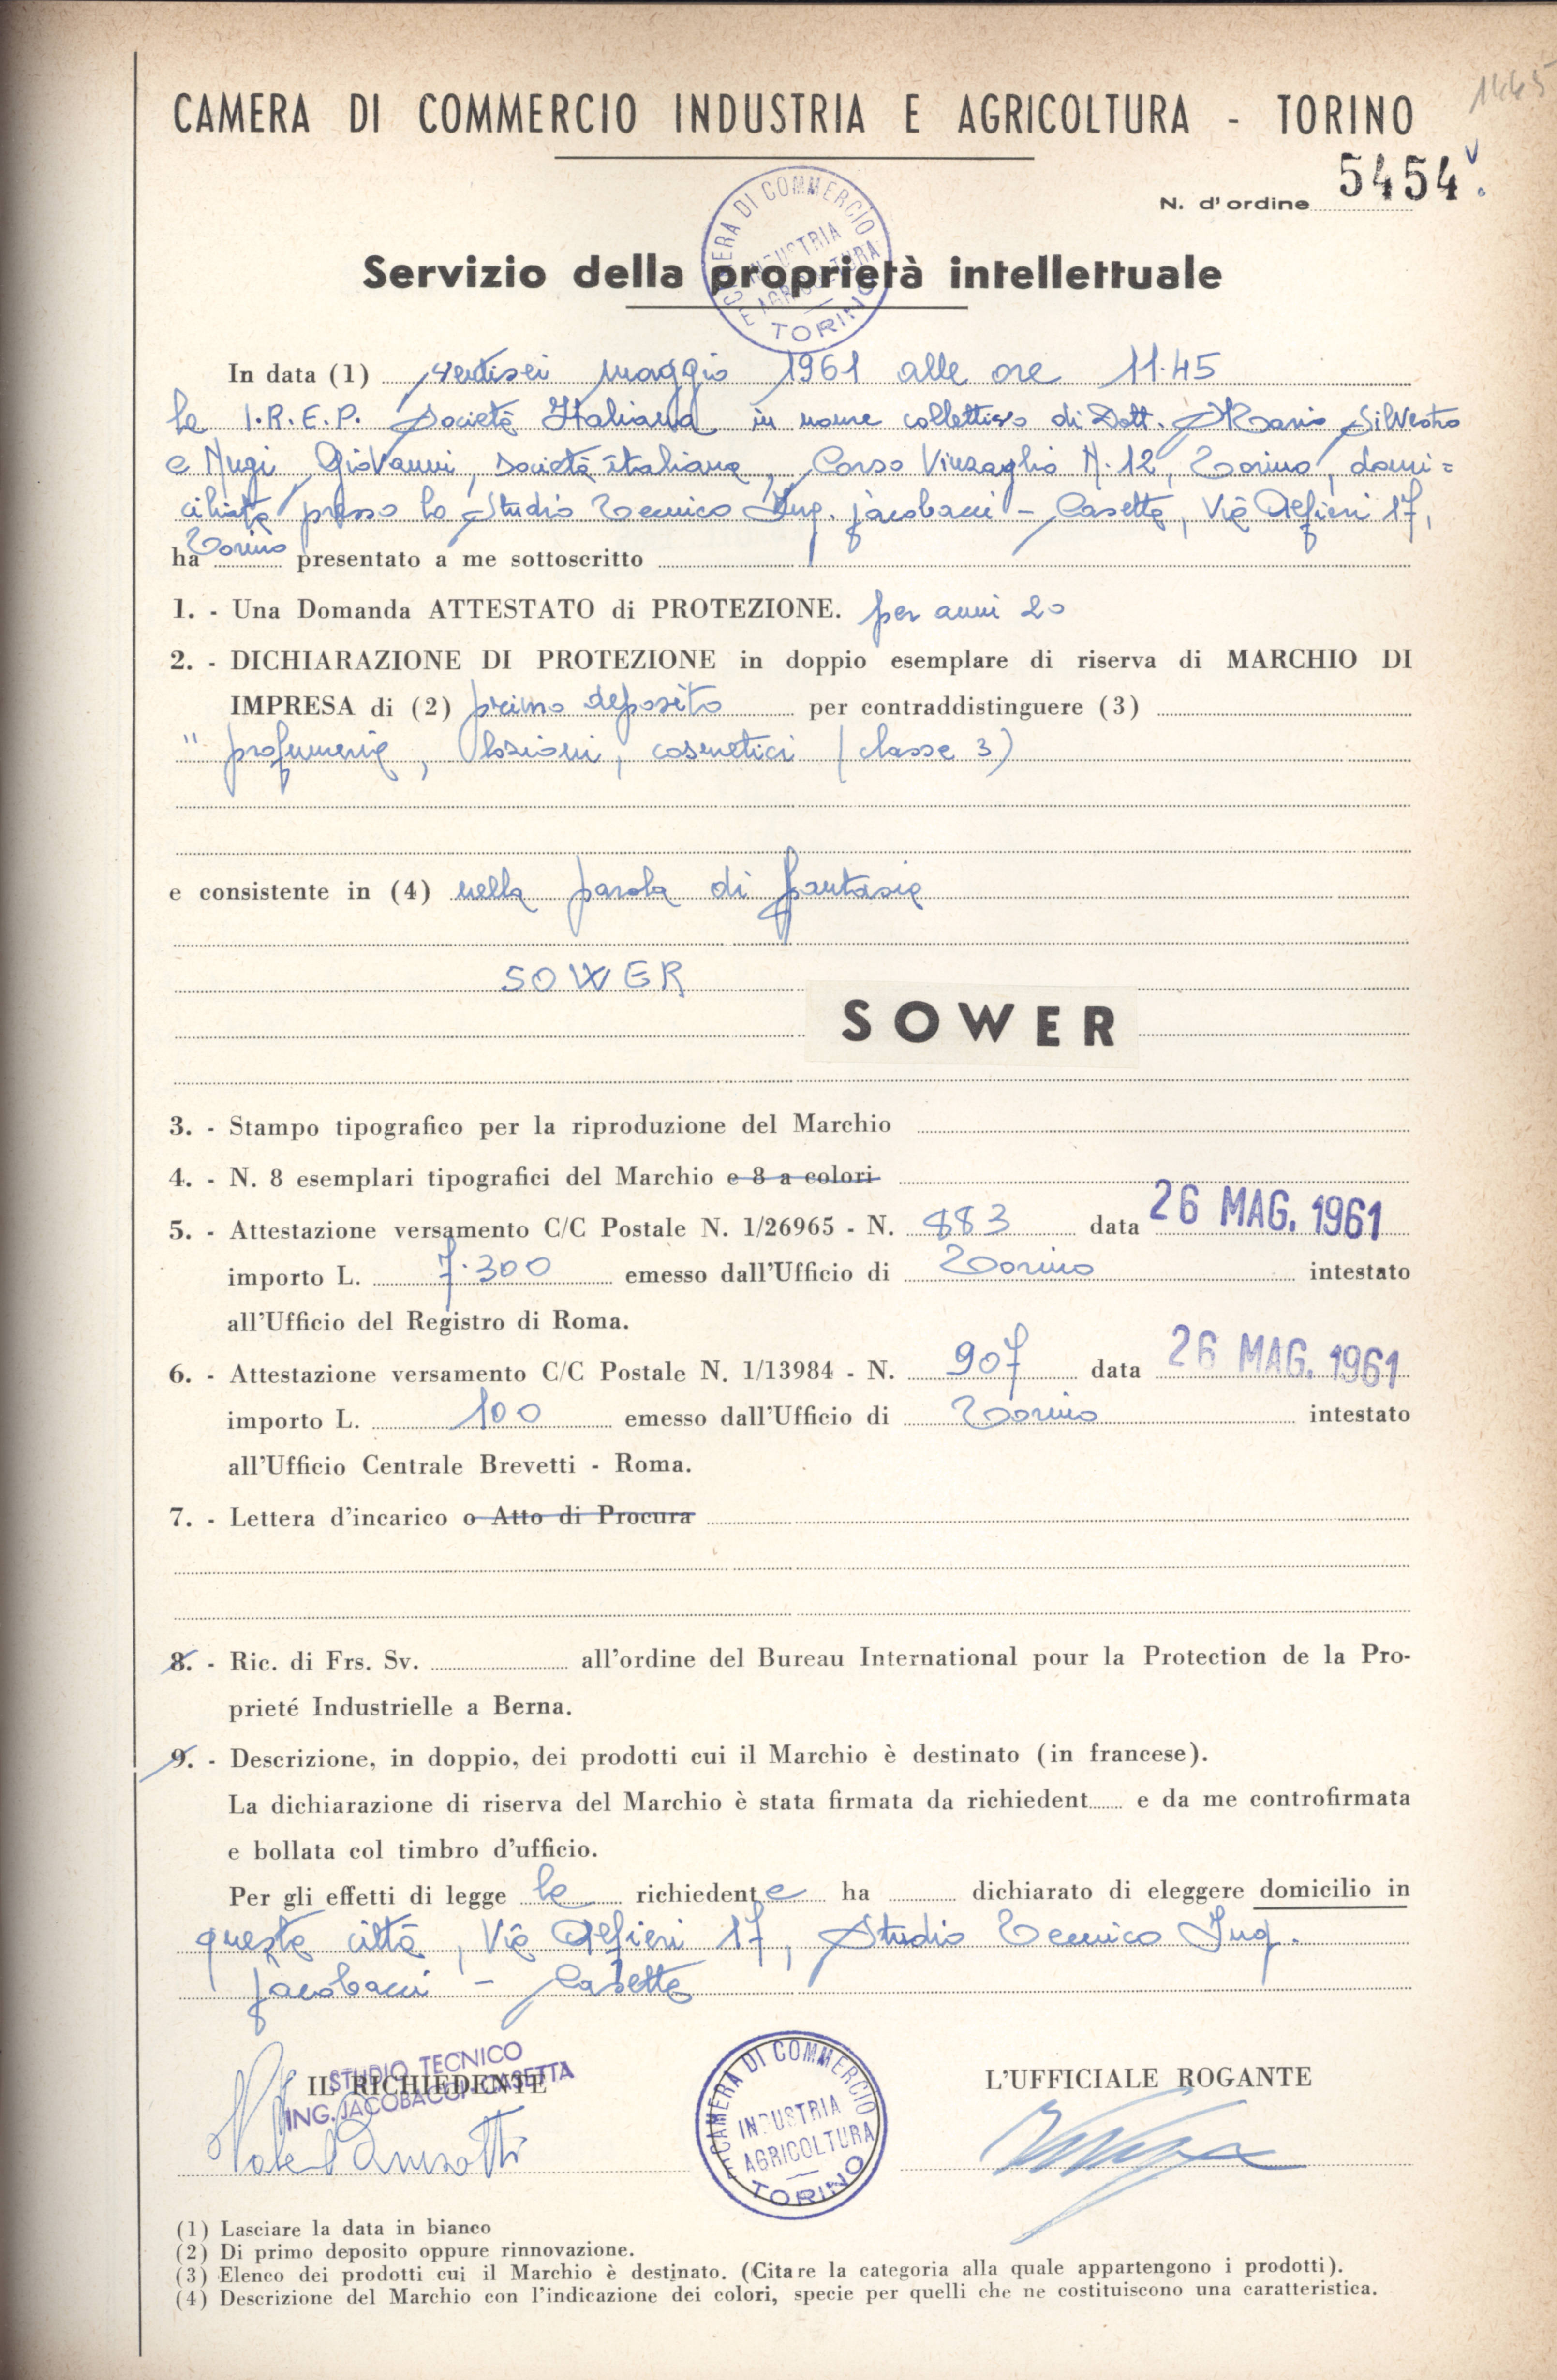 1445
CAMERA DI COMMERCIO INDUSTRIA E AGRICOLTURA - TORINO
N. d'ordine 5454
CAMERA DI COMMERCIO INDUSTRIA E AGRICOLTURA TORINO
Servizio della proprietà intellettuale
In data (1) ventisei maggio 1961 alle ore 11.45
la I.R.E.P. Società Italiana in nome collettivo di Dott. Mario Silvestro
e Mugi Giovanni, società italiana, Corso Vinzaglio N. 12, Torino, domi=
ciliata presso lo Studio Tecnico Ing. Jacobacci - Casetta, Via Alfieri 17,
ha Torino presentato a me sottoscritto
1. - Una Domanda ATTESTATO di PROTEZIONE. per anni 20
2. - DICHIARAZIONE DI PROTEZIONE in doppio esemplare di riserva di MARCHIO DI
IMPRESA di (2) primo deposito per contraddistinguere (3)
" profumerie, lozioni, cosmetici (classe 3)
e consistente in (4) nella parola di fantasia
SOWER
SOWER
3. - Stampo tipografico per la riproduzione del Marchio
4. - N. 8 esemplari tipografici del Marchio e 8 a colori
5. - Attestazione versamento C/C Postale N. 1/26965 - N. 883 data 26 MAG. 1961
importo L. 7.300 emesso dall'Ufficio di Torino intestato
all'Ufficio del Registro di Roma.
6. - Attestazione versamento C/C Postale N. 1/13984 - N. 907 data 26 MAG. 1961
importo L. 100 emesso dall'Ufficio di Torino intestato
all'Ufficio Centrale Brevetti - Roma.
7. - Lettera d'incarico o Atto di Procura
8. - Ric. di Frs. Sv. all'ordine del Bureau International pour la Protection de la Pro-
prieté Industrielle a Berna.
9. - Descrizione, in doppio, dei prodotti cui il Marchio è destinato (in francese).
La dichiarazione di riserva del Marchio è stata firmata da richiedent e da me controfirmata
e bollata col timbro d'ufficio.
Per gli effetti di legge la richiedente ha dichiarato di eleggere domicilio in
questa città, Via Alfieri 17, Studio Tecnico Ing.
Jacobacci - Casetta
IL RICHIEDENTE
STUDIO TECNICO
ING. JACOBACCI - CASETTA
CAMERA DI COMMERCIO INDUSTRIA E AGRICOLTURA TORINO
L'UFFICIALE ROGANTE
(1) Lasciare la data in bianco
(2) Di primo deposito oppure rinnovazione.
(3) Elenco dei prodotti cui il Marchio è destinato. (Citare la categoria alla quale appartengono i prodotti).
(4) Descrizione del Marchio con l'indicazione dei colori, specie per quelli che ne costituiscono una caratteristica.